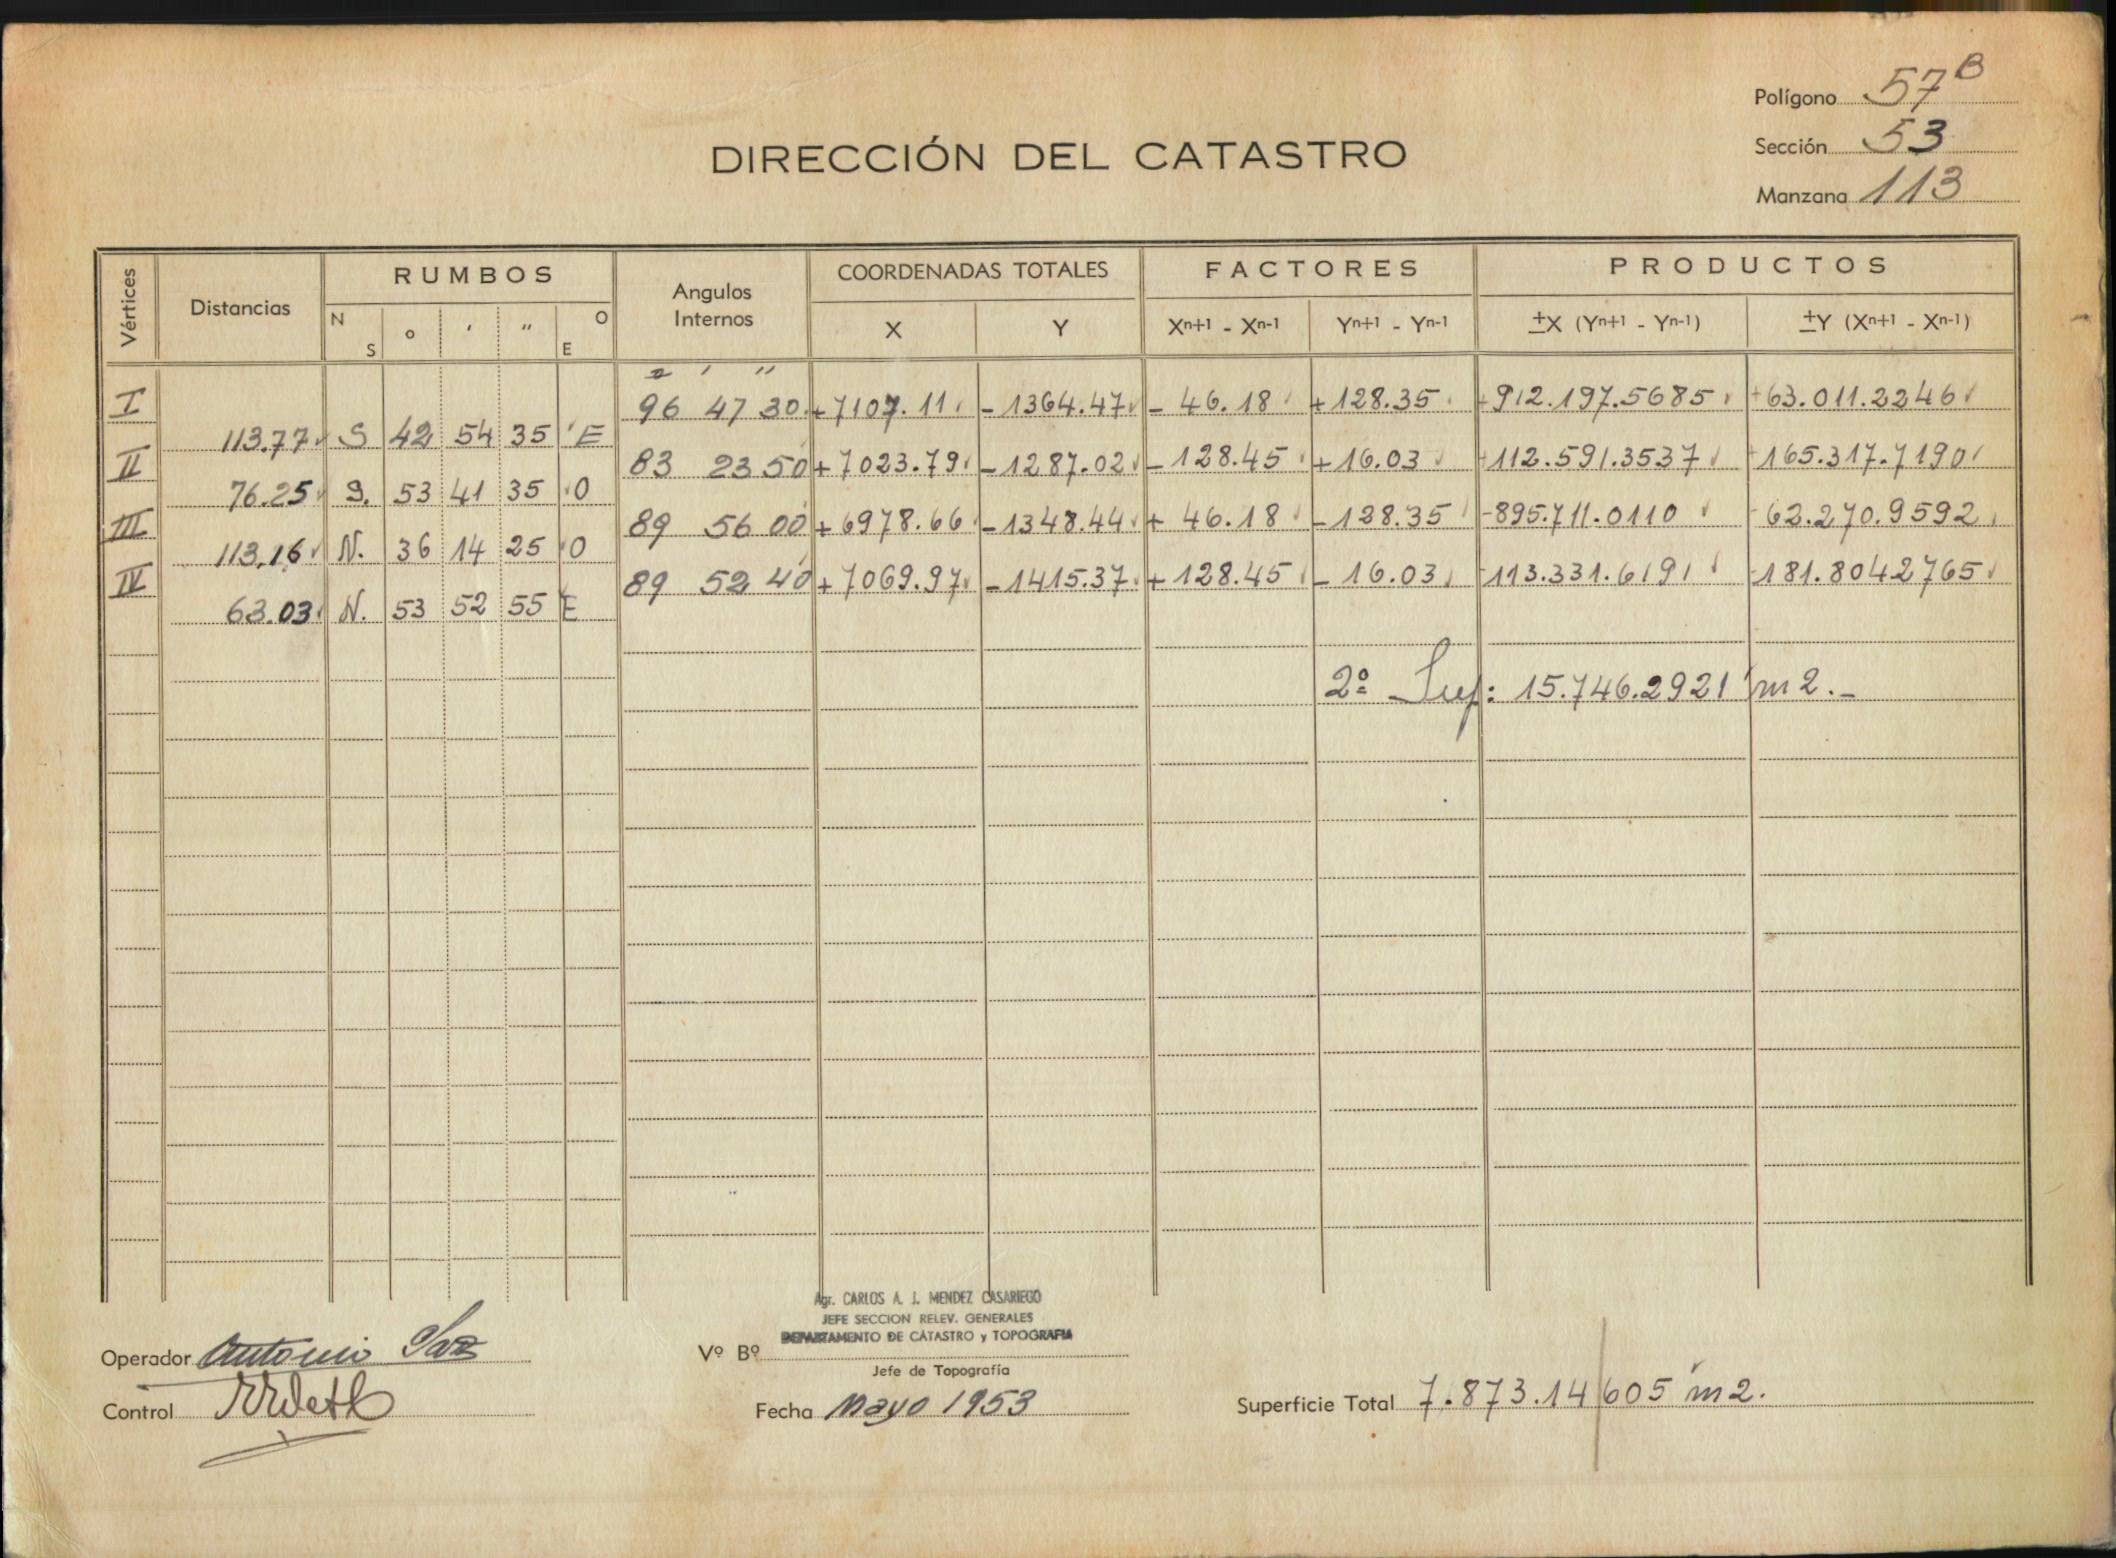 Polígono 57 B
Sección 53
Manzana 113
DIRECCIÓN DEL CATASTRO
Vértices Distancias RUMBOS Angulos Internos COORDENADAS TOTALES FACTORES PRODUCTOS
N S o ' '' O E X Y Xn+1 - Xn-1 Yn+1 - Yn-1 ±X (Yn+1 - Yn-1) ±Y (Xn+1 - Xn-1)
o ' ''
I 96 47 30 +7107.11 -1364.47 - 46.18 +128.35 +912.197.5685 +63.011.2246
113.77 S 42 54 35 E
II 83 23 50 +7023.79 -1287.02 -128.45 +16.03 +112.591.3537 +165.317.7190
76.25 S. 53 41 35 O
III 89 56 00 +6978.66 -1348.44 + 46.18 -128.35 -895.711.0110 -62.270.9592
113.16 N. 36 14 25 O
IV 89 52 40 +7069.97 -1415.37 +128.45 - 16.03 -113.331.6191 -181.8042765
63.03 N. 53 52 55 E
2º Sup: 15.746.2921 m2.-
Agr. CARLOS A. J. MENDEZ CASARIEGO
JEFE SECCION RELEV. GENERALES
DEPARTAMENTO DE CATASTRO y TOPOGRAFIA
Operador Antonio Vº Bº
Jefe de Topografía
Control Fecha Mayo 1953 Superficie Total 7.873.14605 m2.